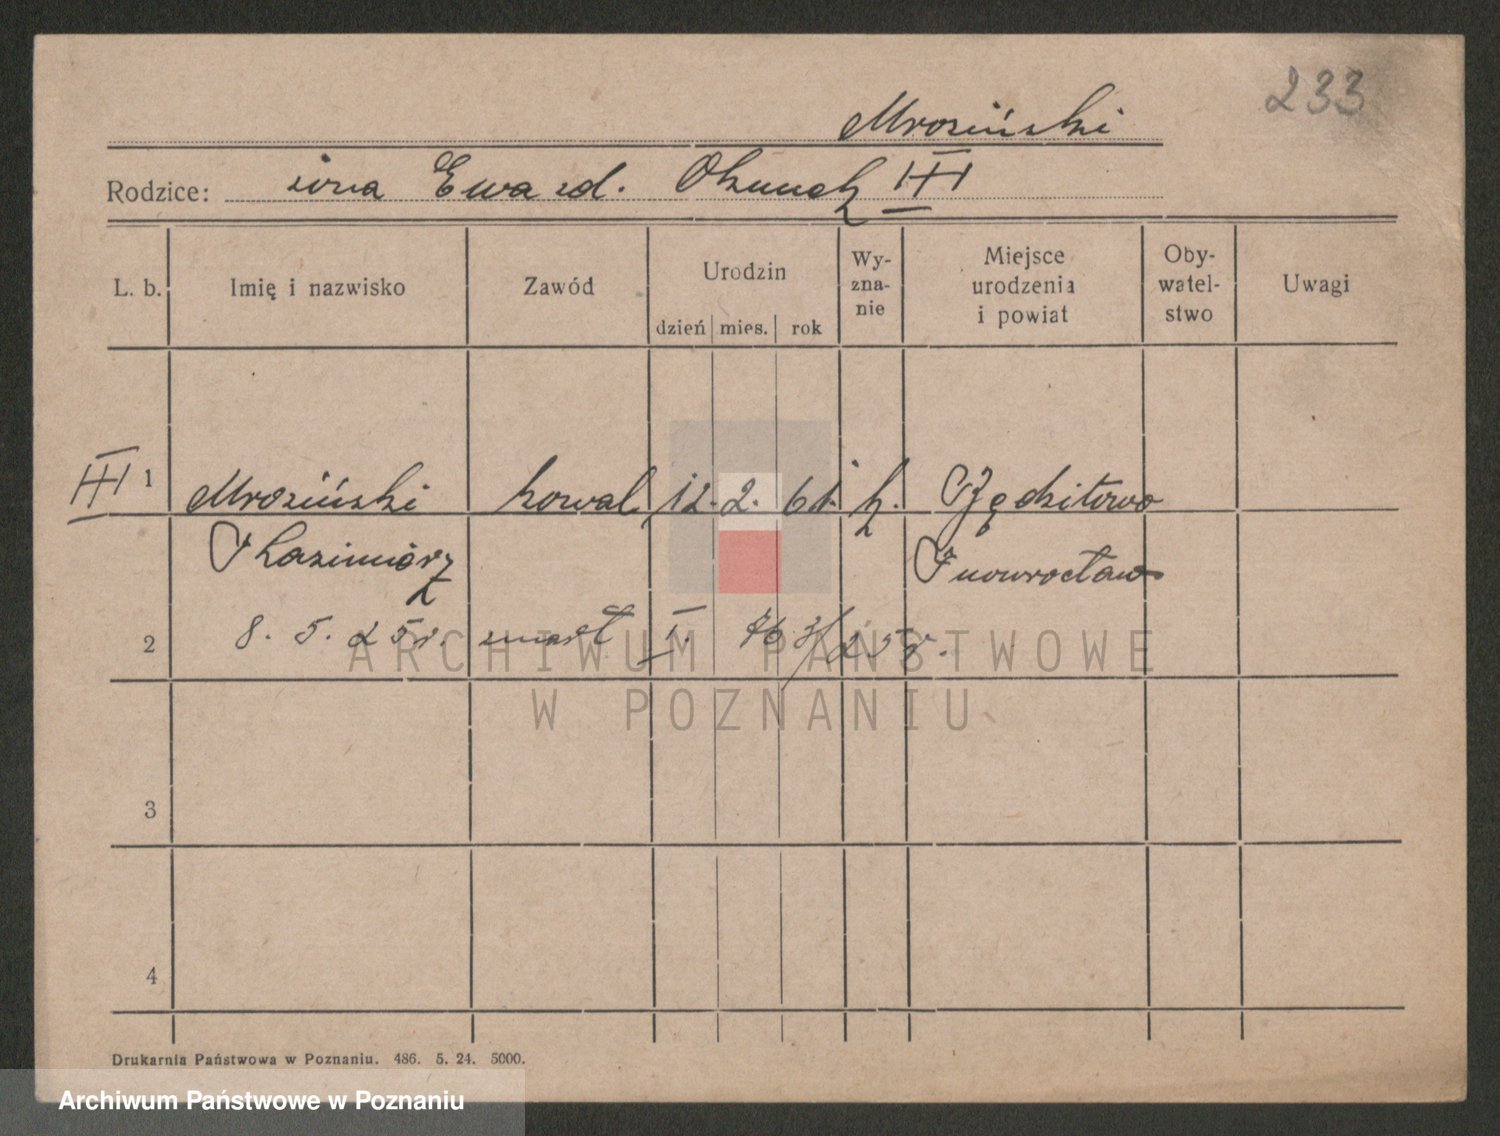 233
Mrosiński
Rodzice: żona Ewa zd. Okunek III
L. b. Imię i nazwisko Zawód Urodzin dzień mies. rok Wy-zna-nie Miejsce urodzenia i powiat Oby-watel-stwo Uwagi
III 1 Mrosiński kowal 12. 2. 61. k.
Kazimierz Inowrocław
2 8. 5. 25 r. zmarł I. 763/25 r.
ARCHIWUM PAŃSTWOWE
W POZNANIU
3
4
Drukarnia Państwowa w Poznaniu. 486. 5. 24. 5000.
Archiwum Państwowe w Poznaniu